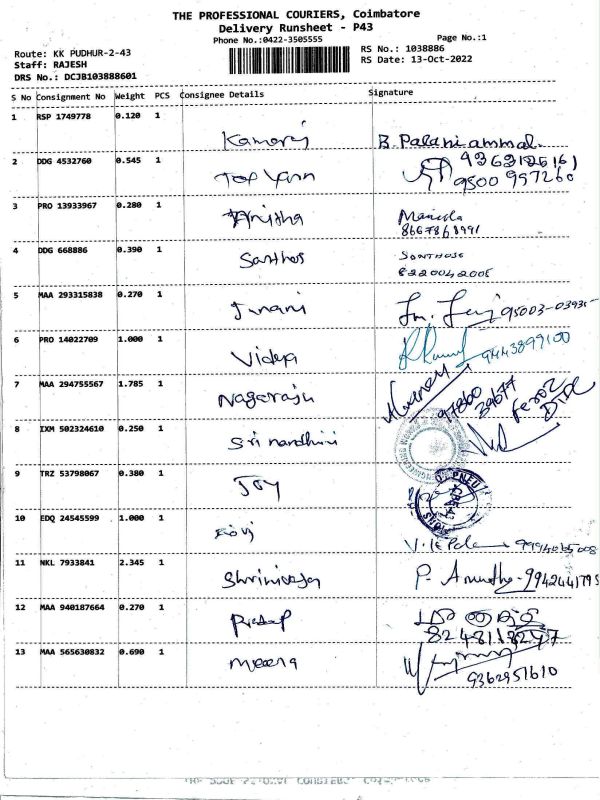 THE PROFESSIONAL COURIERS, Coimbatore
Delivery Runsheet - P43
Phone No.:0422-3505555
Page No.:1
Route: KK PUDHUR-2-43
RS No.: 1038886
Staff: RAJESH
RS Date: 13-Oct-2022
DRS No.: DCJB103888601
S No Consignment No Weight PCS Consignee Details Signature
1 RSP 1749778 0.120 1
Kamaraj B. Palaniammal
2 DDG 4532760 0.545 1
9500 957260
3 PRO 13933967 0.280 1
Anitha
4 DDG 668886 0.390 1
Santhos SANTHOSE
8220042005
5 MAA 293315838 0.270 1
Janani 95003-03935
6 PRO 14022709 1.000 1
Vidya 9443899100
7 MAA 294755567 1.785 1
Nagaraju 97860
34677
Feroz
8 IXM 502324610 0.250 1
Sri nandhini
9 TRZ 53798067 0.380 1
Joy
10 EDQ 24545599 1.000 1
11 NKL 7933841 2.345 1
Shrinivasa P. Anutha-9942441795
12 MAA 940187664 0.270 1
Pradeep
13 MAA 565630832 0.690 1
Meena
9362951610